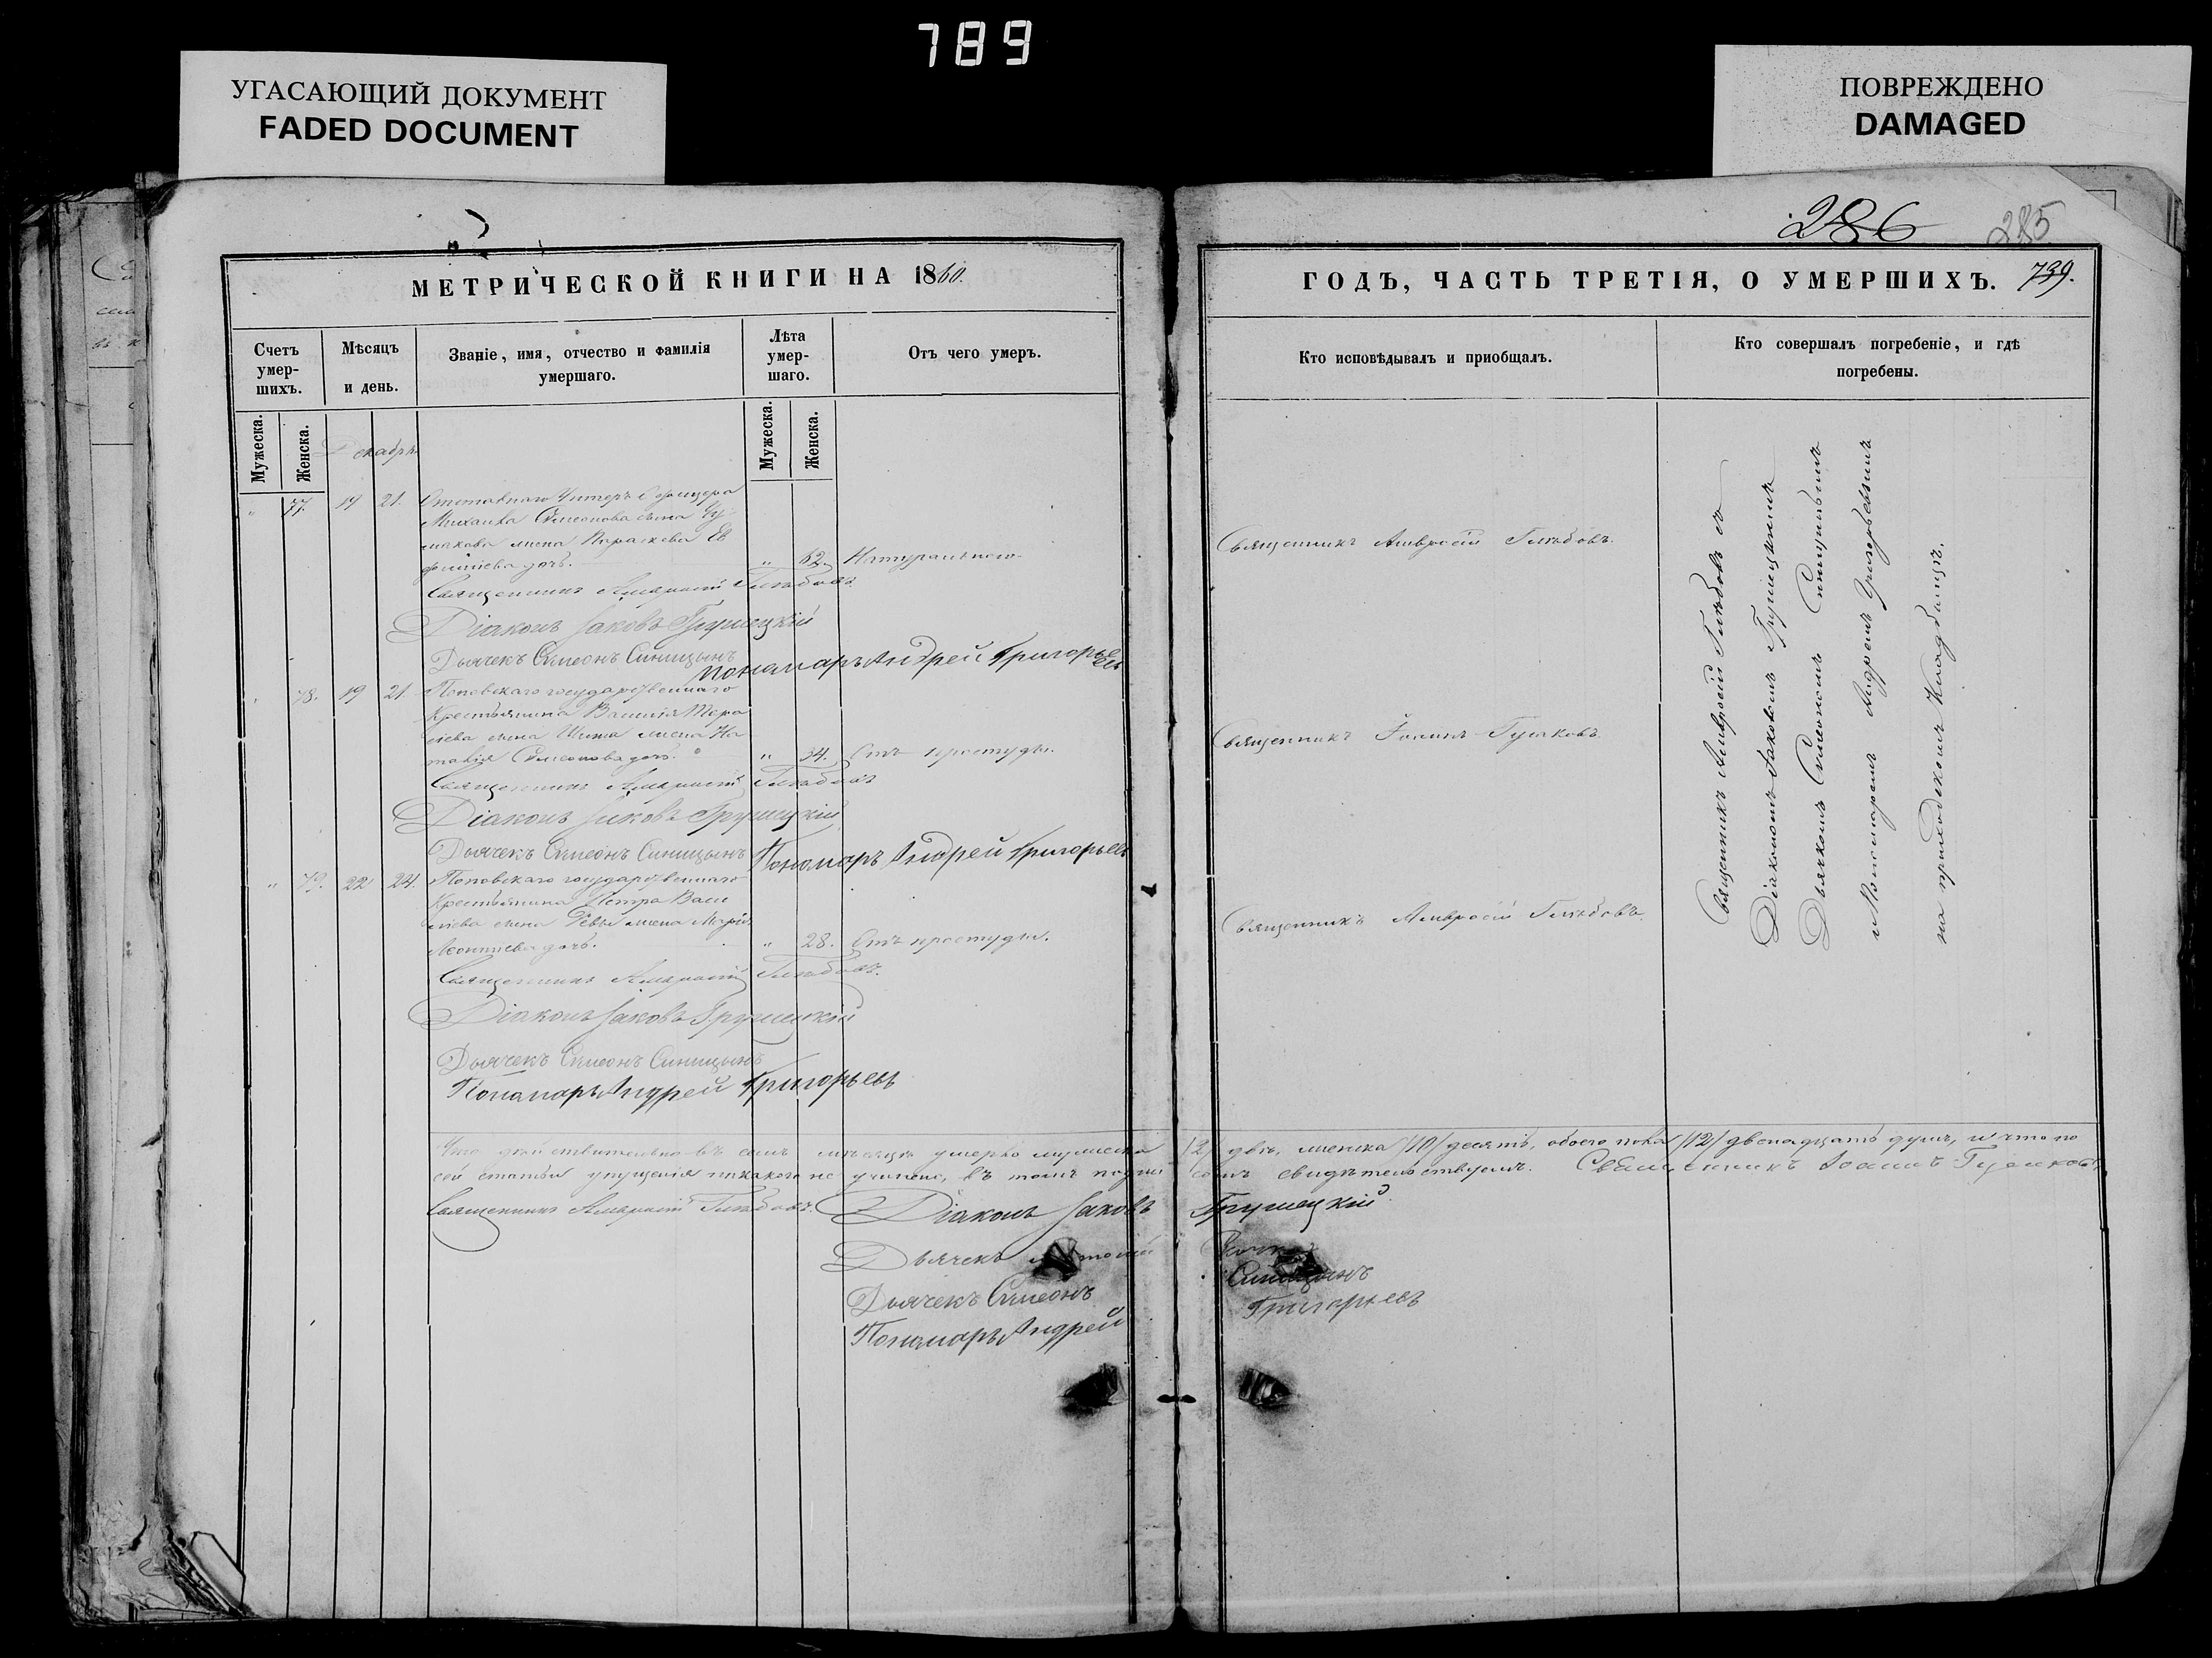 789
УГАСАЮЩИЙ ДОКУМЕНТ
FADED DOCUMENT
ПОВРЕЖДЕНО
DAMAGED
286
285
МЕТРИЧЕСКОЙ КНИГИ НА 1860.
ГОДЪ, ЧАСТЬ ТРЕТІЯ, О УМЕРШИХЪ. 739.
Счетъ умер-шихъ.
Мѣсяцъ и день.
Званіе, имя, отчество и фамилія умершаго.
Лѣта умер-шаго.
Отъ чего умеръ.
Кто исповѣдывалъ и приобщалъ.
Кто совершалъ погребеніе, и гдѣ погребены.
Мужеска.
Женска.
Мужеска.
Женска.
Декабрь
" 77. 19 21. Отставнаго Унтеръ Офицера
Михаила Симеонова сына
жена Параскева Ев
фиміева дочь. " 62. Натурально
Священникъ Амвросій Глѣбовъ.
Діаконъ Іаковъ Грушецкій
Дьячекъ Симеонъ Синицынъ
Пономарь Андрей Григорьевъ
" 78. 19 21. Поповскаго государственнаго
Крестьянина Василія
сына жена На
талія Симеонова дочь. " 34. Отъ простуды.
Священникъ Амвросій Глѣбовъ
Діаконъ Іаковъ Грушецкій
Дьячекъ Симеонъ Синицынъ
Пономарь Андрей Григорьевъ
" 79. 22 24. Поповскаго государственнаго
Крестьянина Петра Васи
ліева сына Ревы жена Марія
Леонтіева дочь. " 28. Отъ простуды.
Священникъ Амвросій Глѣбовъ.
Діаконъ Іаковъ Грушецкій
Дьячекъ Симеонъ Синицынъ
Пономарь Андрей Григорьевъ
Священникъ Амвросій Глѣбовъ.
Священникъ Іоаннъ Гусаковъ
Священникъ Амвросій Глѣбовъ.
Священникъ Амвросій Глѣбовъ съ
Діакономъ Іаковомъ Грушецкимъ
Дьячкомъ Симеономъ Синицынымъ
и Пономаремъ Андреемъ Григорьевымъ
на приходскомъ Кладбищѣ.
Что дѣйствительно въ семъ мѣсяцѣ умерло мужеска /2/ два, женска /10/ десять, обоего пола /12/ двенадцать душъ, и что по
сей статьи упущенія никакого не учинено, въ томъ подпи сомъ свидѣтельствуемъ. Священникъ Іоаннъ Гусаковъ
Священникъ Амвросій Глѣбовъ. Діаконъ Іаковъ Грушецкій
Дьячекъ
Дьячекъ Симеонъ Синицынъ
Пономарь Андрей Григорьевъ